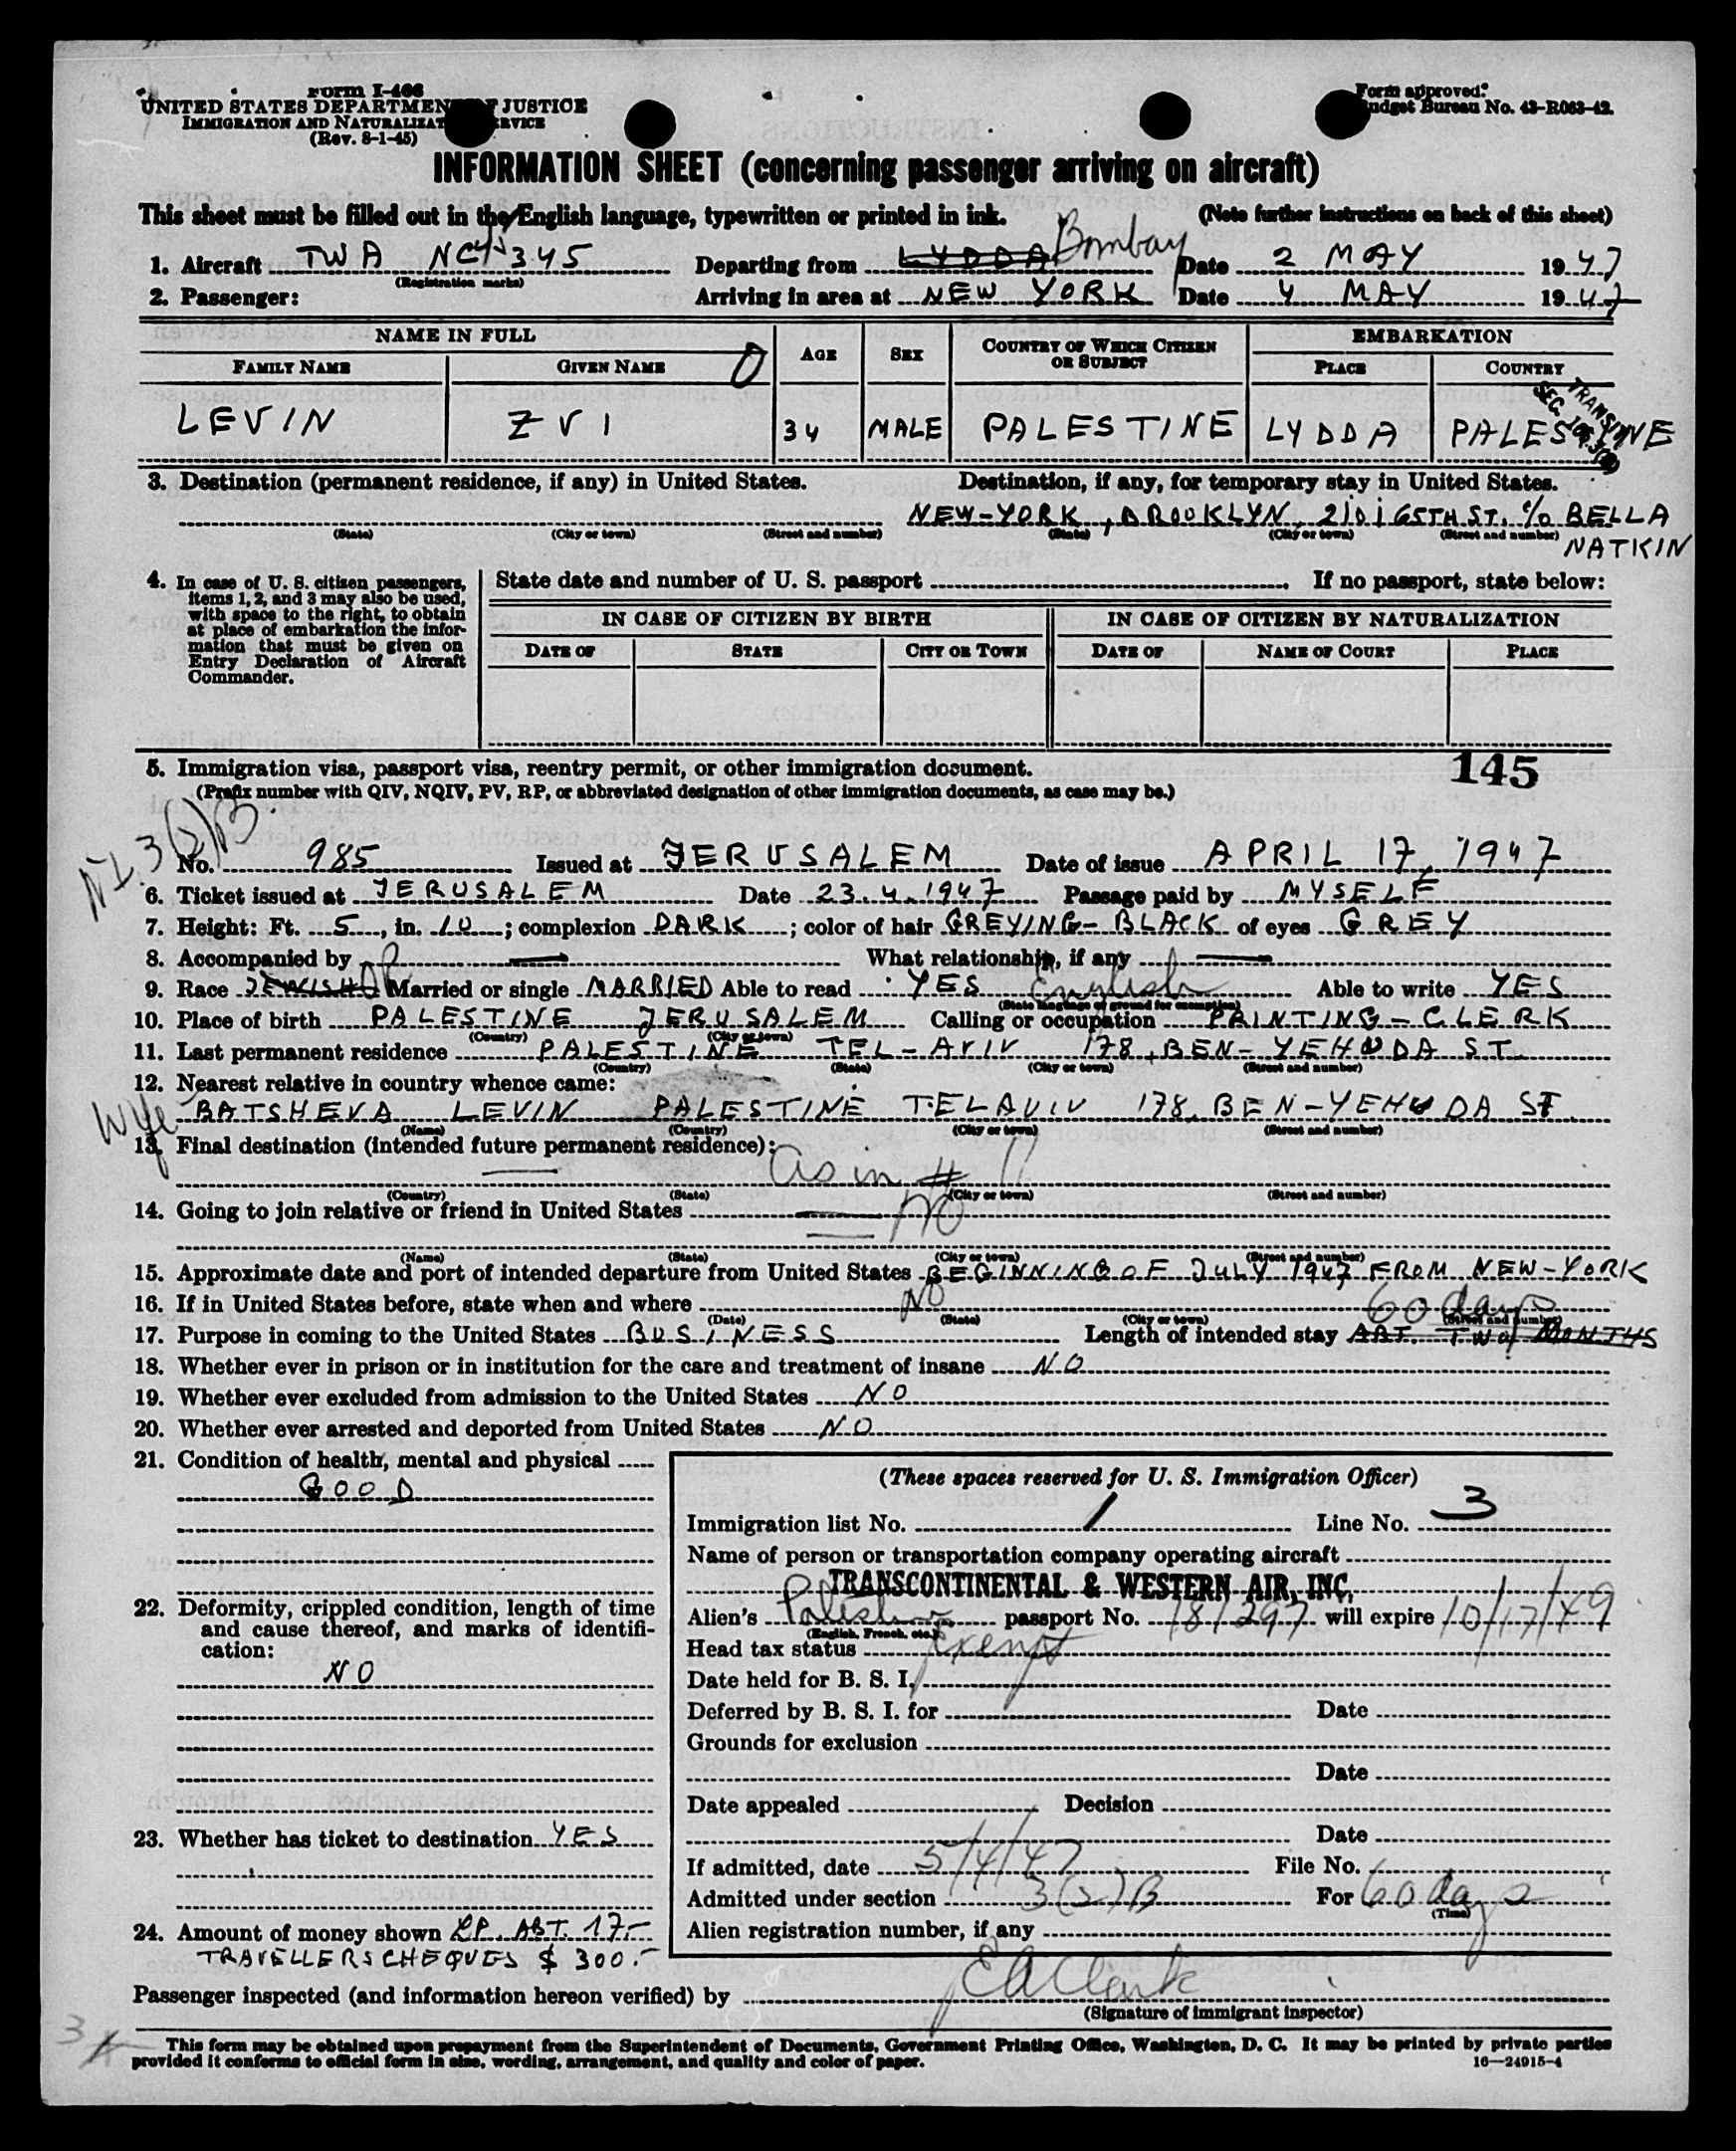 Form I-466
UNITED STATES DEPARTMENT OF JUSTICE
IMMIGRATION AND NATURALIZATION SERVICE
(Rev. 8-1-45)
Form approved.
Budget Bureau No. 43-R063-42.
INFORMATION SHEET (concerning passenger arriving on aircraft)
This sheet must be filled out in the English language, typewritten or printed in ink. (Note further instructions on back of this sheet)
1. Aircraft TWA 345 (Registration marks) Departing from LYDDA Bombay Date 2 MAY 1947
2. Passenger: Arriving in area at NEW YORK Date 4 MAY 1947
NAME IN FULL AGE SEX COUNTRY OF WHICH CITIZEN OR SUBJECT EMBARKATION
FAMILY NAME GIVEN NAME PLACE COUNTRY
TRANSIT SEC.
LEVIN ZVI 34 MALE PALESTINE LYDDA PALESTINE
3. Destination (permanent residence, if any) in United States. Destination, if any, for temporary stay in United States.
NEW-YORK, BROOKLYN, 2101 65TH ST. c/o BELLA NATKIN
(State) (City or town) (Street and number) (State) (City or town) (Street and number)
4. In case of U. S. citizen passengers, items 1, 2, and 3 may also be used, with space to the right, to obtain at place of embarkation the information that must be given on Entry Declaration of Aircraft Commander.
State date and number of U. S. passport If no passport, state below:
IN CASE OF CITIZEN BY BIRTH IN CASE OF CITIZEN BY NATURALIZATION
DATE OF STATE CITY OR TOWN DATE OF NAME OF COURT PLACE
145
5. Immigration visa, passport visa, reentry permit, or other immigration document.
(Prefix number with QIV, NQIV, PV, RP, or abbreviated designation of other immigration documents, as case may be.)
3(2)B
No. 985 Issued at JERUSALEM Date of issue APRIL 17, 1947
6. Ticket issued at JERUSALEM Date 23.4.1947 Passage paid by MYSELF
7. Height: Ft. 5, in. 10; complexion DARK; color of hair GREYING-BLACK of eyes GREY
8. Accompanied by — What relationship, if any —
9. Race JEWISH Married or single MARRIED Able to read YES English Able to write YES
(State language or ground for exemption)
10. Place of birth PALESTINE JERUSALEM Calling or occupation PRINTING-CLERK
(Country) (City or town)
11. Last permanent residence PALESTINE TEL-AVIV 178, BEN-YEHUDA ST.
(Country) (State) (City or town) (Street and number)
12. Nearest relative in country whence came:
Wife BATSHEVA LEVIN PALESTINE TELAVIV 178, BEN-YEHUDA ST.
(Name) (Country) (City or town) (Street and number)
13. Final destination (intended future permanent residence):
— As in # 11
(Country) (State) (City or town) (Street and number)
14. Going to join relative or friend in United States — No
(Name) (State) (City or town) (Street and number)
15. Approximate date and port of intended departure from United States BEGINNING OF JULY 1947 FROM NEW-YORK
16. If in United States before, state when and where NO 60 days
(Date) (State) (City or town) (Street and number)
17. Purpose in coming to the United States BUSINESS Length of intended stay ABT. TWO MONTHS
18. Whether ever in prison or in institution for the care and treatment of insane NO
19. Whether ever excluded from admission to the United States NO
20. Whether ever arrested and deported from United States NO
21. Condition of health, mental and physical
GOOD
22. Deformity, crippled condition, length of time and cause thereof, and marks of identification:
NO
23. Whether has ticket to destination YES
24. Amount of money shown LP. ABT. 17.-
TRAVELLERS CHEQUES $ 300.-
(These spaces reserved for U. S. Immigration Officer)
Immigration list No. 1 Line No. 3
Name of person or transportation company operating aircraft
TRANSCONTINENTAL & WESTERN AIR, INC.
Alien's passport No. 181297 will expire 10/17/49
(English, French, etc.)
Head tax status Exempt
Date held for B. S. I.
Deferred by B. S. I. for Date
Grounds for exclusion
Date
Date appealed Decision
Date
If admitted, date 5/4/47 File No.
Admitted under section 3(2)B For 60 days
(Time)
Alien registration number, if any
Passenger inspected (and information hereon verified) by E A Clark
(Signature of immigrant inspector)
This form may be obtained upon prepayment from the Superintendent of Documents, Government Printing Office, Washington, D. C. It may be printed by private parties
provided it conforms to official form in size, wording, arrangement, and quality and color of paper.
16—24915-4